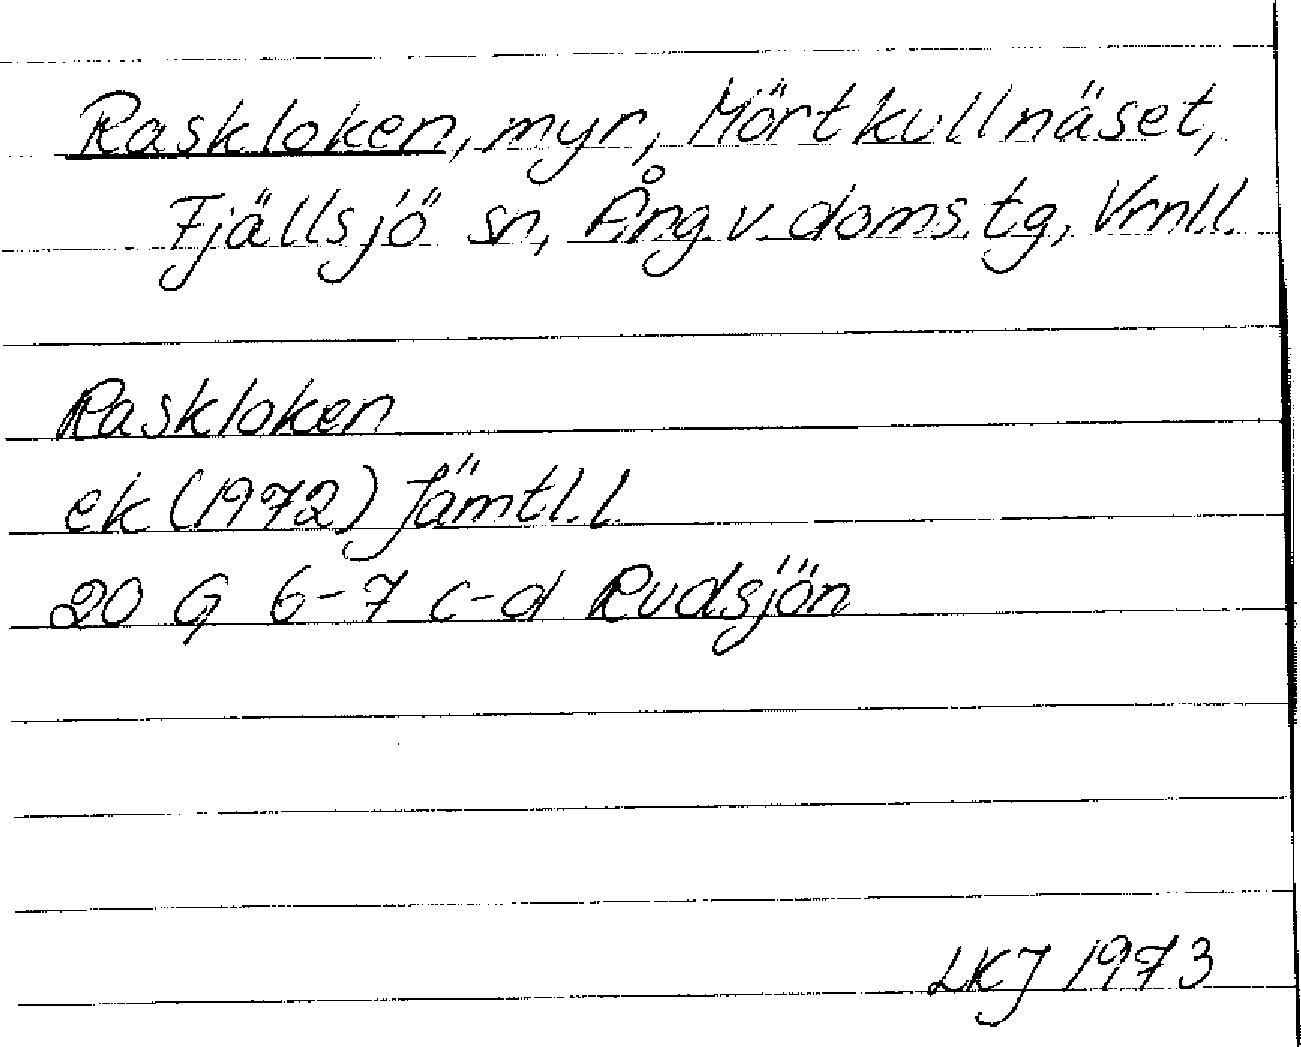 Raskloken, myr, Mörtkullnäset,
Fjällsjö sn, Ång.v.doms.tg, Vrnl.l.
Raskloken
ek (1972) Jämtl.l.
20 G 6-7 c-d Rudsjön
LKJ 1973